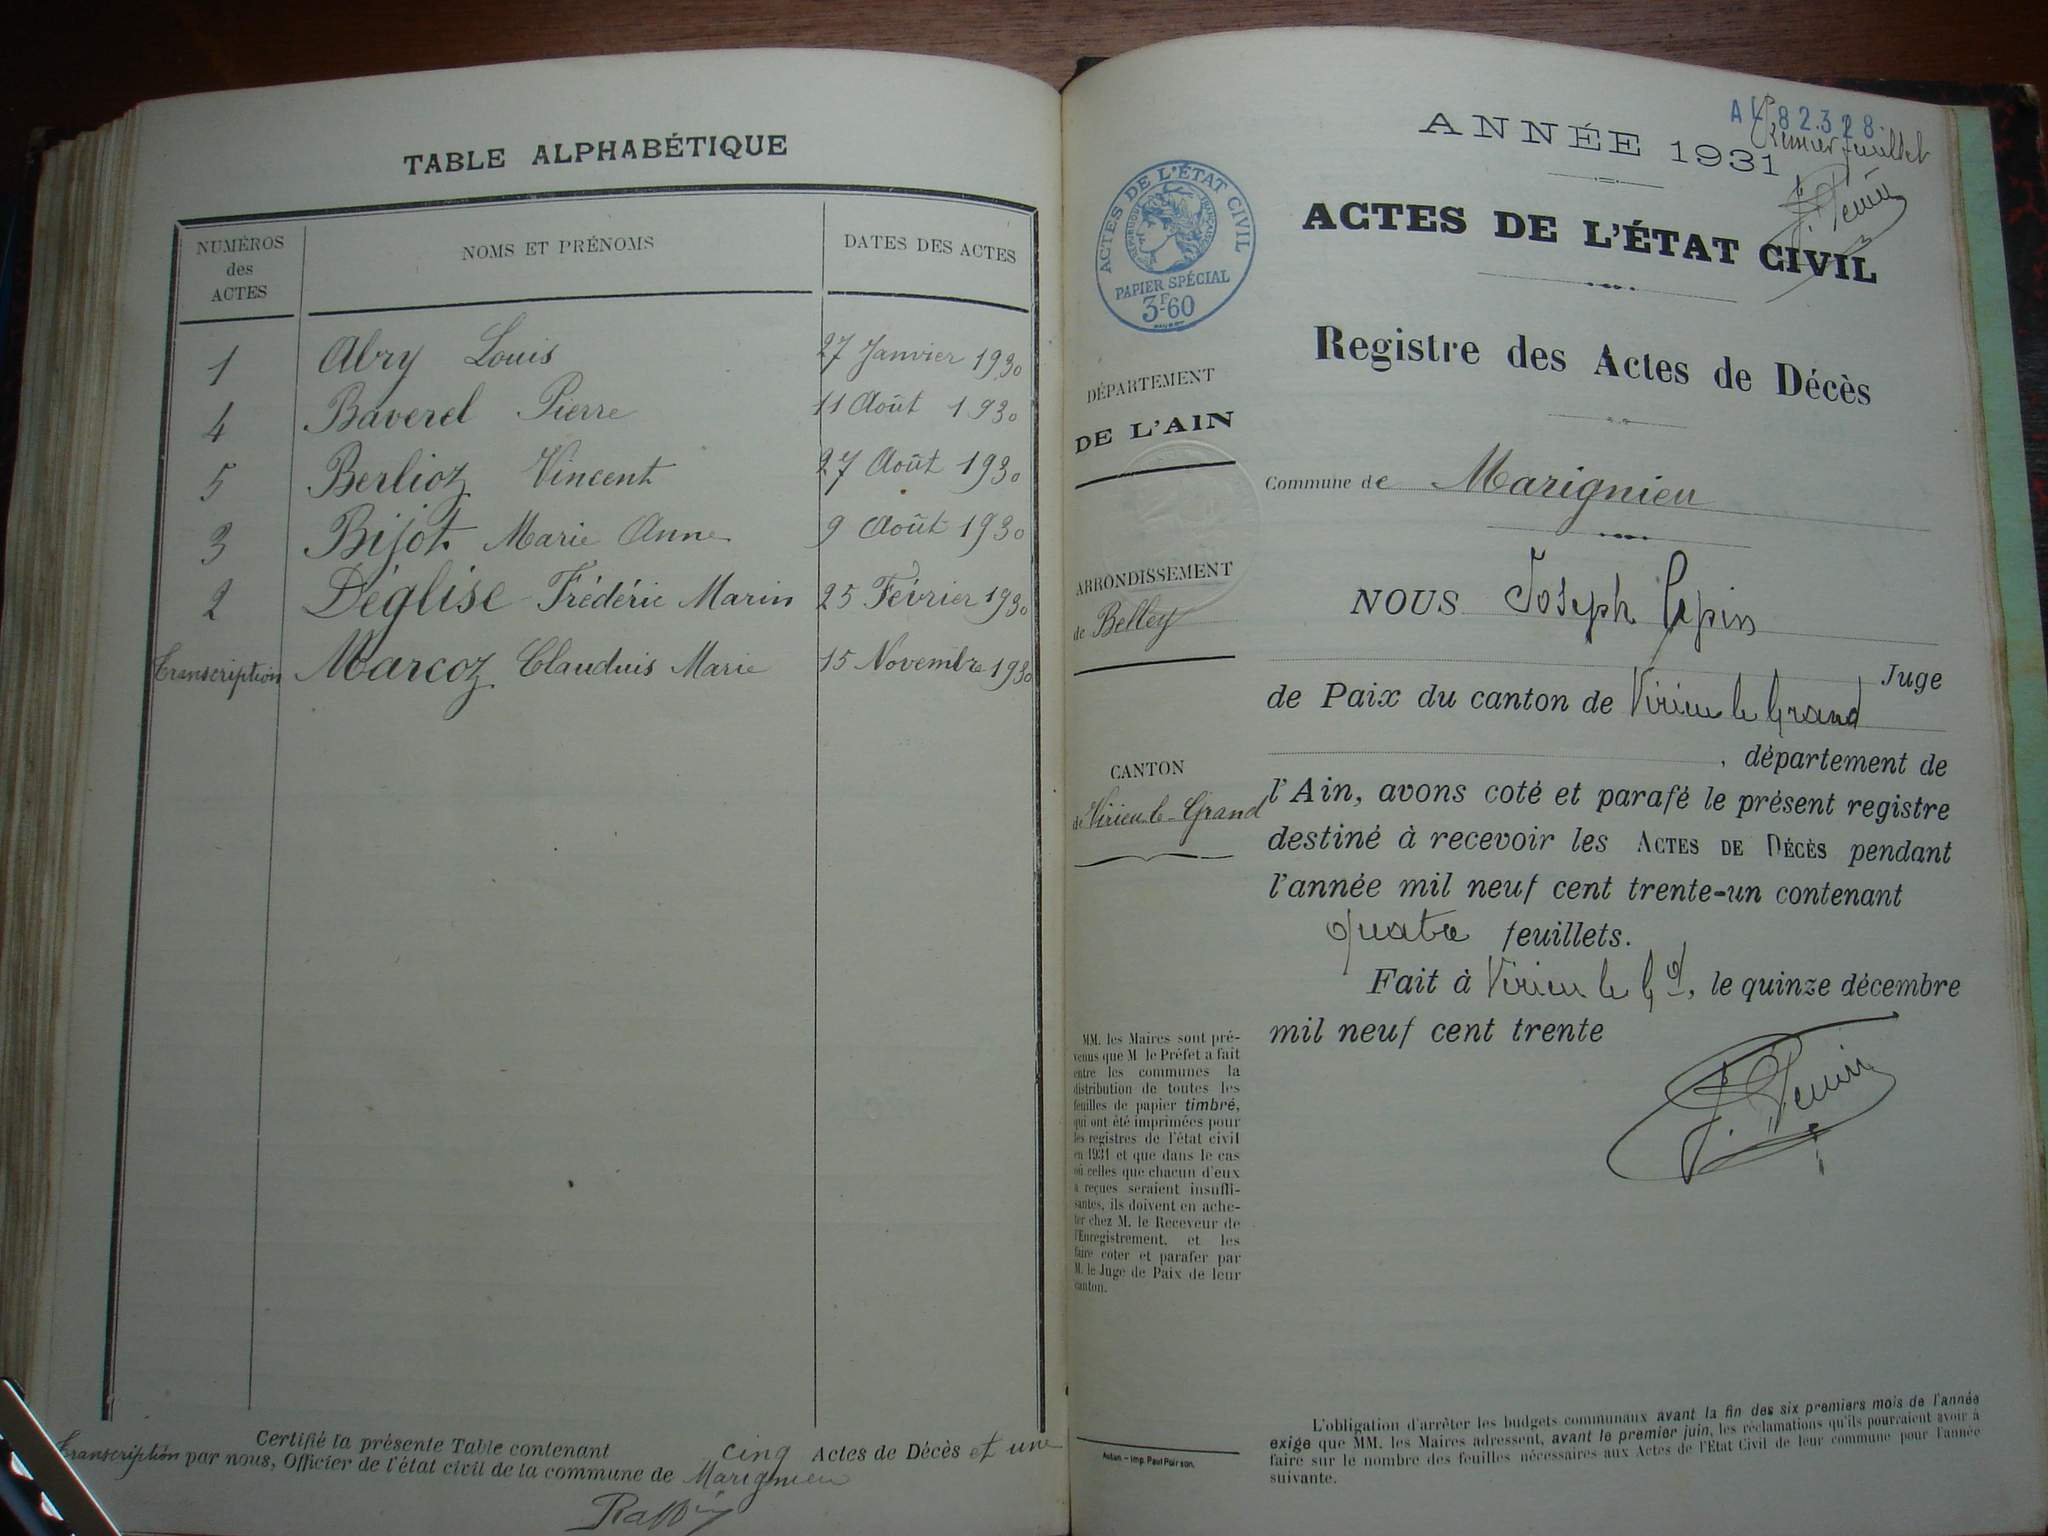 TABLE ALPHABÉTIQUE
NUMÉROS des ACTES
NOMS ET PRÉNOMS
DATES DES ACTES
1 Abry Louis 27 Janvier 1930
4 Baverel Pierre 11 Août 1930
5 Berlioz Vincent 27 Août 1930
3 Bijot Marie Anne 9 Août 1930
2 Déglise Frédéric Marin 25 Février 1930
Transcription Marcoz Claudius Marie 15 Novembre 1930
Certifié la présente Table contenant cinq Actes de Décès et une
Transcription par nous, Officier de l'état civil de la commune de Marignieu
AL 82.328
Premier feuillet
ANNÉE 1931
ACTES DE L'ÉTAT CIVIL
RÉPUBLIQUE FRANÇAISE
PAPIER SPÉCIAL
3F60
ACTES DE L'ÉTAT CIVIL
Registre des Actes de Décès
DÉPARTEMENT
DE L'AIN
Commune de Marignieu
ARRONDISSEMENT
de Belley
CANTON
de Virieu-le-Grand
NOUS Joseph Pepin
Juge
de Paix du canton de Virieu le Grand
, département de
l'Ain, avons coté et parafé le présent registre
destiné à recevoir les ACTES DE DÉCÈS pendant
l'année mil neuf cent trente-un contenant
quatre feuillets.
Fait à Virieu le Gd, le quinze décembre
mil neuf cent trente
MM. les Maires sont pré-
venus que M le Préfet a fait
entre les communes la
distribution de toutes les
feuilles de papier timbré,
qui ont été imprimées pour
les registres de l'état civil
en 1931 et que dans le cas
où celles que chacun d'eux
a reçues seraient insuffi-
santes, ils doivent en ache-
ter chez M. le Receveur de
l'Enregistrement, et les
faire coter et parafer par
M. le Juge de Paix de leur
canton.
L'obligation d'arrêter les budgets communaux avant la fin des six premiers mois de l'année
exige que MM. les Maires adressent, avant le premier juin, les réclamations qu'ils pourraient avoir à
faire sur le nombre des feuilles nécessaires aux Actes de l'État Civil de leur commune pour l'année
suivante.